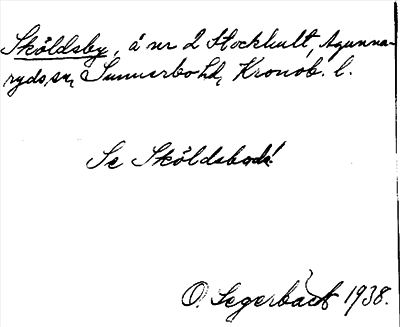 Sköldsby, å nr 2 Stockhult, Agunna-
ryds sn, Sunnerbo hd, Kronob. l.
Se Sköldsboda!
O. Segerbäck 1938.